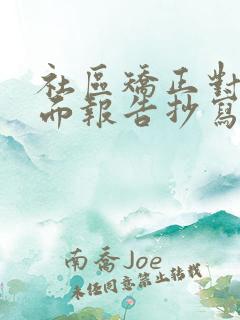 社區矯正對
而報告抄寫
南喬Joe
未經同意禁止轉載